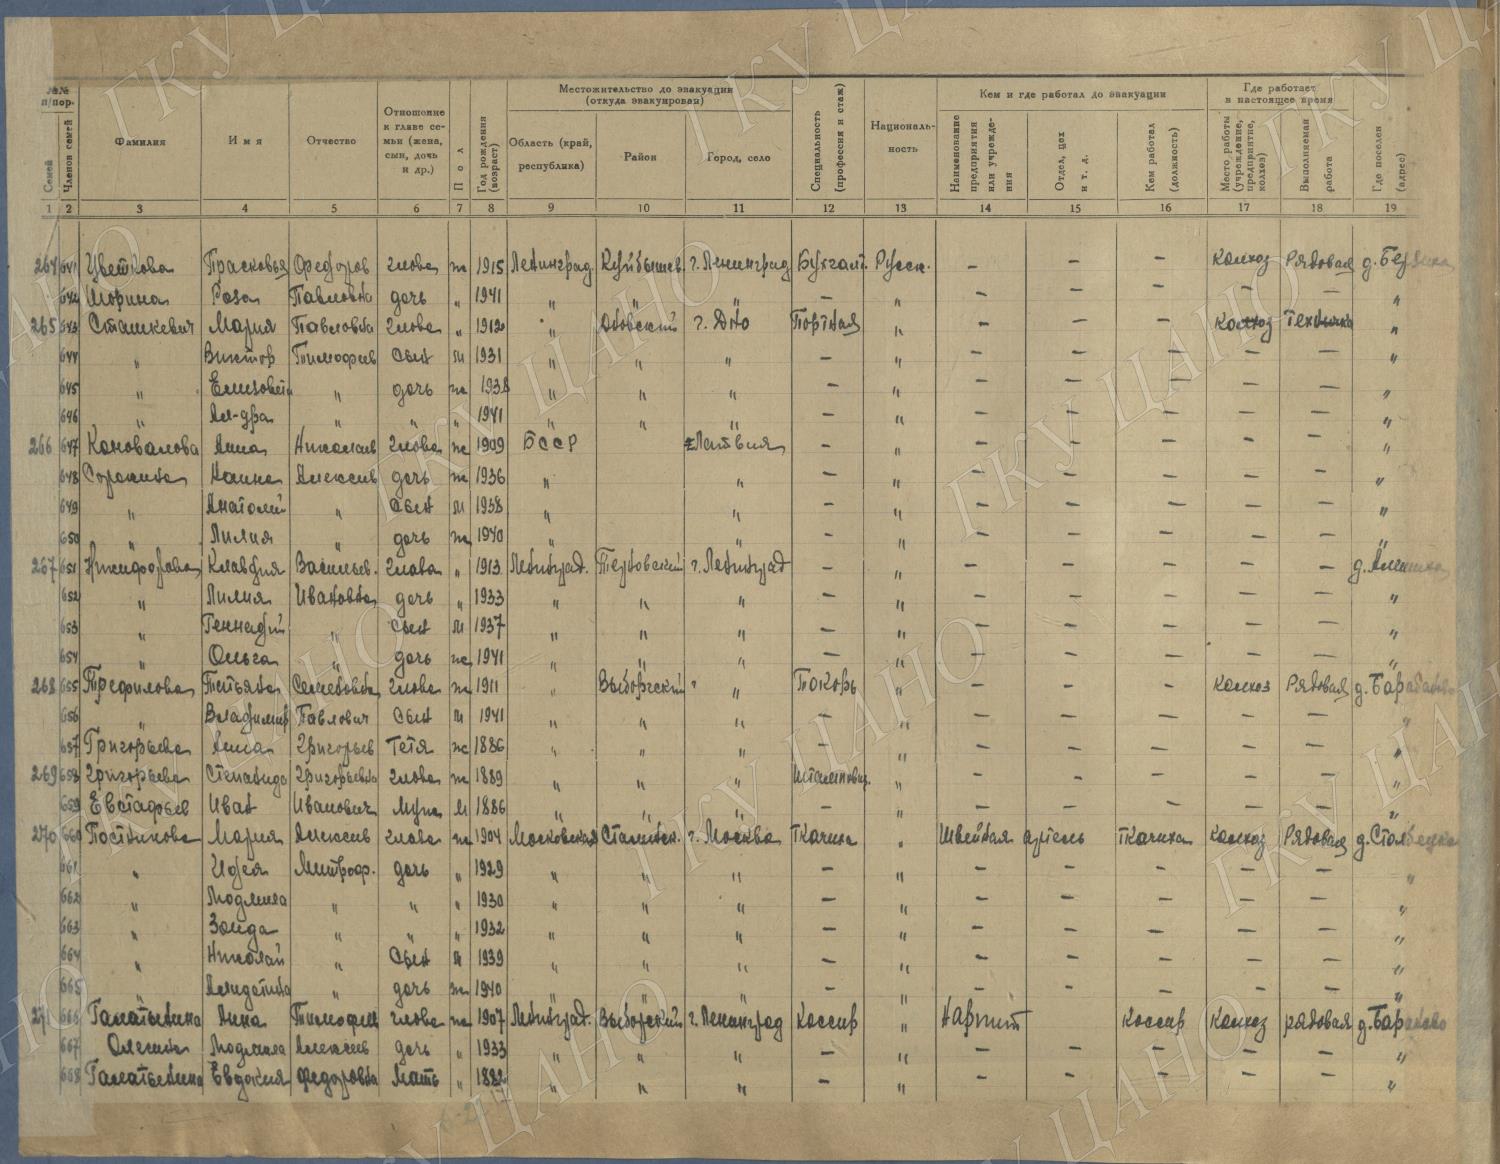 №№ п/пор.
Семей
Членов семей
Фамилия
Имя
Отчество
Отношение к главе семьи (жена, сын, дочь и др.)
Пол
Год рождения (возраст)
Местожительство до эвакуации (откуда эвакуирован)
Область (край, республика)
Район
Город, село
Специальность (профессия и стаж)
Националь-ность
Кем и где работал до эвакуации
Наименование предприятия или учрежде-ния
Отдел, цех и т. д.
Кем работал (должность)
Где работает в настоящее время
Место работы (учреждение, предприятие, колхоз)
Выполняемая работа
Где поселен (адрес)
1 2 3 4 5 6 7 8 9 10 11 12 13 14 15 16 17 18 19
264 641 Цветкова Прасковья Федоров глова ж 1915 Ленинград. Куйбышев. г. Ленинград Бухгалт. Русск. — — — колхоз Рядовая
642 Шорина Роза Павловна дочь " 1941 " " " — " — — — — — "
265 643 Сташкевич Мария Павловна глова " 1912 " г. Дно Портная " — — — колхоз "
644 " Виктор Тимофеев сын м 1931 " " " — " — — — — — "
645 " Елизовета " дочь ж 1938 " " " — " — — — — — "
646 Ал-дра " " " 1941 " " " — " — — — — — "
266 647 Коновалова Анна Николаев глова ж 1909 БССР Латвия — " — — — — — "
648 Сорокина Нонна Алексеев дочь ж 1936 " " — " — — — — — "
649 " Анатолий " сын м 1938 " " — " — — — — — "
650 " Лилия " дочь ж 1940 " " — " — — — — — "
267 651 Никифорова Клавдия Васильев. глова " 1913 Ленинград. г. Ленинград — " — — — — —
652 " Лилия Ивановна дочь " 1933 " " " — " — — — — — "
653 " Геннадий " сын м 1937 " " " — " — — — — — "
654 " Ольга " дочь ж 1941 " " " — " — — — — — "
268 655 Трефилова Татьяна Семеновна глова ж 1911 " Выборгский " " Токорь " — — — колхоз Рядовая
656 " Владимир Павлович сын м 1941 " " " — " — — — — — "
657 Григорьева Анна Григорьев Тетя ж 1886 " " " — " — — — — — "
269 658 Григорьева Степанида Григорьевна глова ж 1889 " " " " — — — — — "
659 Евстафьев Иван Иванович муж м 1886 " " " — " — — — — — "
270 660 Постникова Мария Алексеев глова ж 1904 Московская Сталинск. г. Москва Ткачиха " Швейная артель ткачиха колхоз Рядовая
661 " Идея Митроф. дочь " 1929 " " " — " — — — — — "
662 " Людмила " " " 1930 " " " — " — — — — — "
663 " Зоида " " " 1932 " " " — " — — — — — "
664 " Николай " сын м 1939 " " " — " — — — — — "
665 " " дочь ж 1940 " " " — " — — — — — "
271 666 Анна Тимофеев глова ж 1907 Ленинград. Выборгский г. Ленинград Кассир " Нарпит Кассир Колхоз рядовая
667 Людмила Алексеев дочь " 1933 " " " — " — — — — — "
668 Евдокия Федоровна Мать " 1882 " " " — " — — — — — "
ГКУ ЦАНО